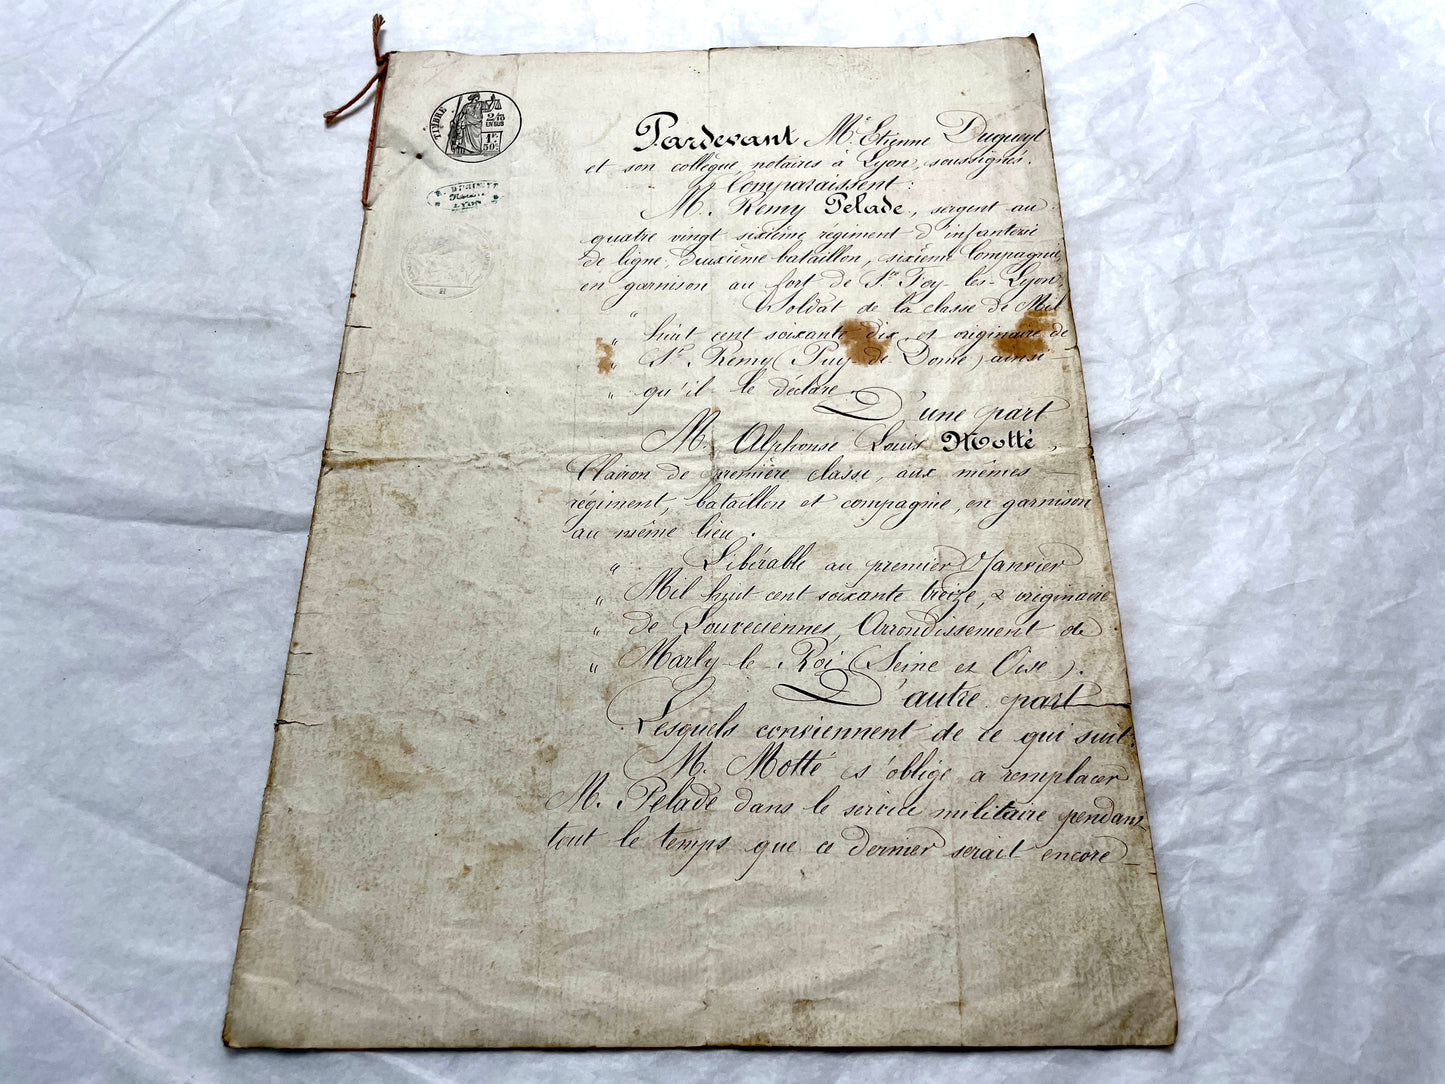 TIMBRE
2/10
EN SUS
1F.
50c.
LYON
Pardevant Me. Etienne
et son collègue, notaires à Lyon, soussignés.
Comparaissent:
M. Rémy Pelade, sergent au
quatre vingt sixième régiment d'infanterie
de ligne, deuxième bataillon, sixième Compagnie,
en garnison au fort de Ste Foy-les-Lyon,
" Soldat de la classe de Mil
" huit cent soixante dix, et originaire de
" St. Remy (Puy-de-Dome) ainsi
" qu'il le déclare.
D'une part
M. Alphonse Louis Motté,
Clairon de première classe, aux mêmes
régiment, bataillon et compagnie, en garnison
au même lieu.
" Libérable au premier Janvier
" Mil huit cent soixante treize, & originaire
" de Louveciennes, Arrondissement de
" Marly-le-Roi (Seine et Oise).
D'autre part
Lesquels conviennent de ce qui suit:
M. Motté s'oblige a remplacer
M. Pelade dans le service militaire pendant
tout le temps que ce dernier serait encore